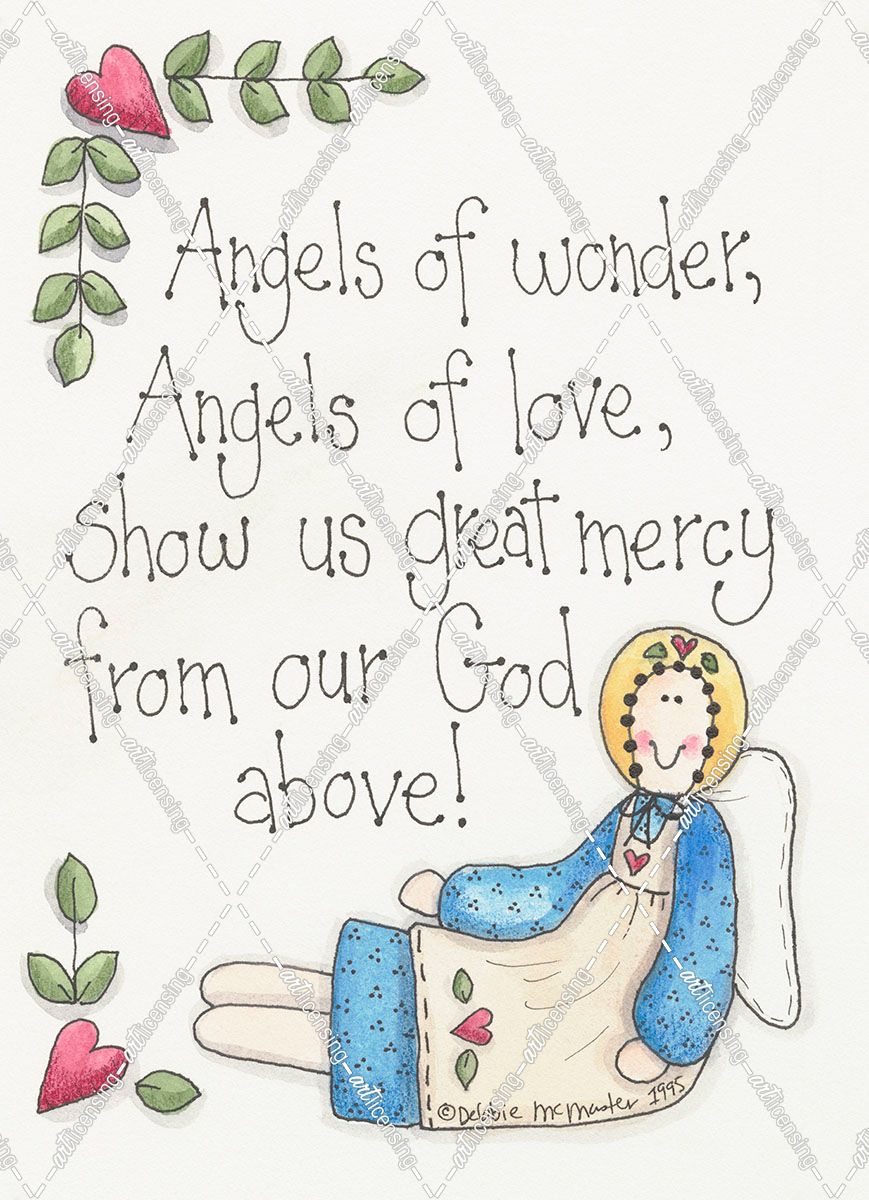 Angels of wonder,
Angels of love,
Show us great mercy
from our God
above!
©Debbie McMaster 1995
artlicensing